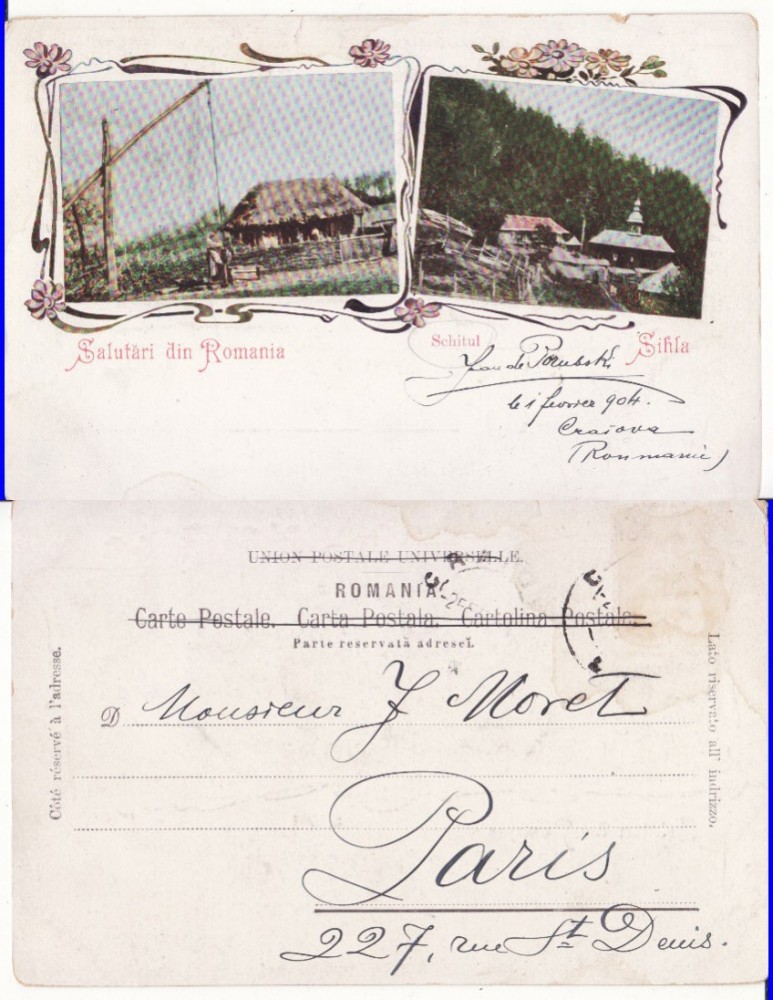 Salutări din Romania
Schitul Sihla
Jean de Porubski
le 1 fevrier 904.
Craiova
(Roumanie)
UNION POSTALE UNIVERSELLE.
ROMANIA.
Carte Postale. Carta Postala. Cartolina Postale.
Parte reservată adresei.
Côté réservé à l'adresse.
Lato riservato all' indrizzo.
D Monsieur J Moret
Paris
227, rue St Denis.